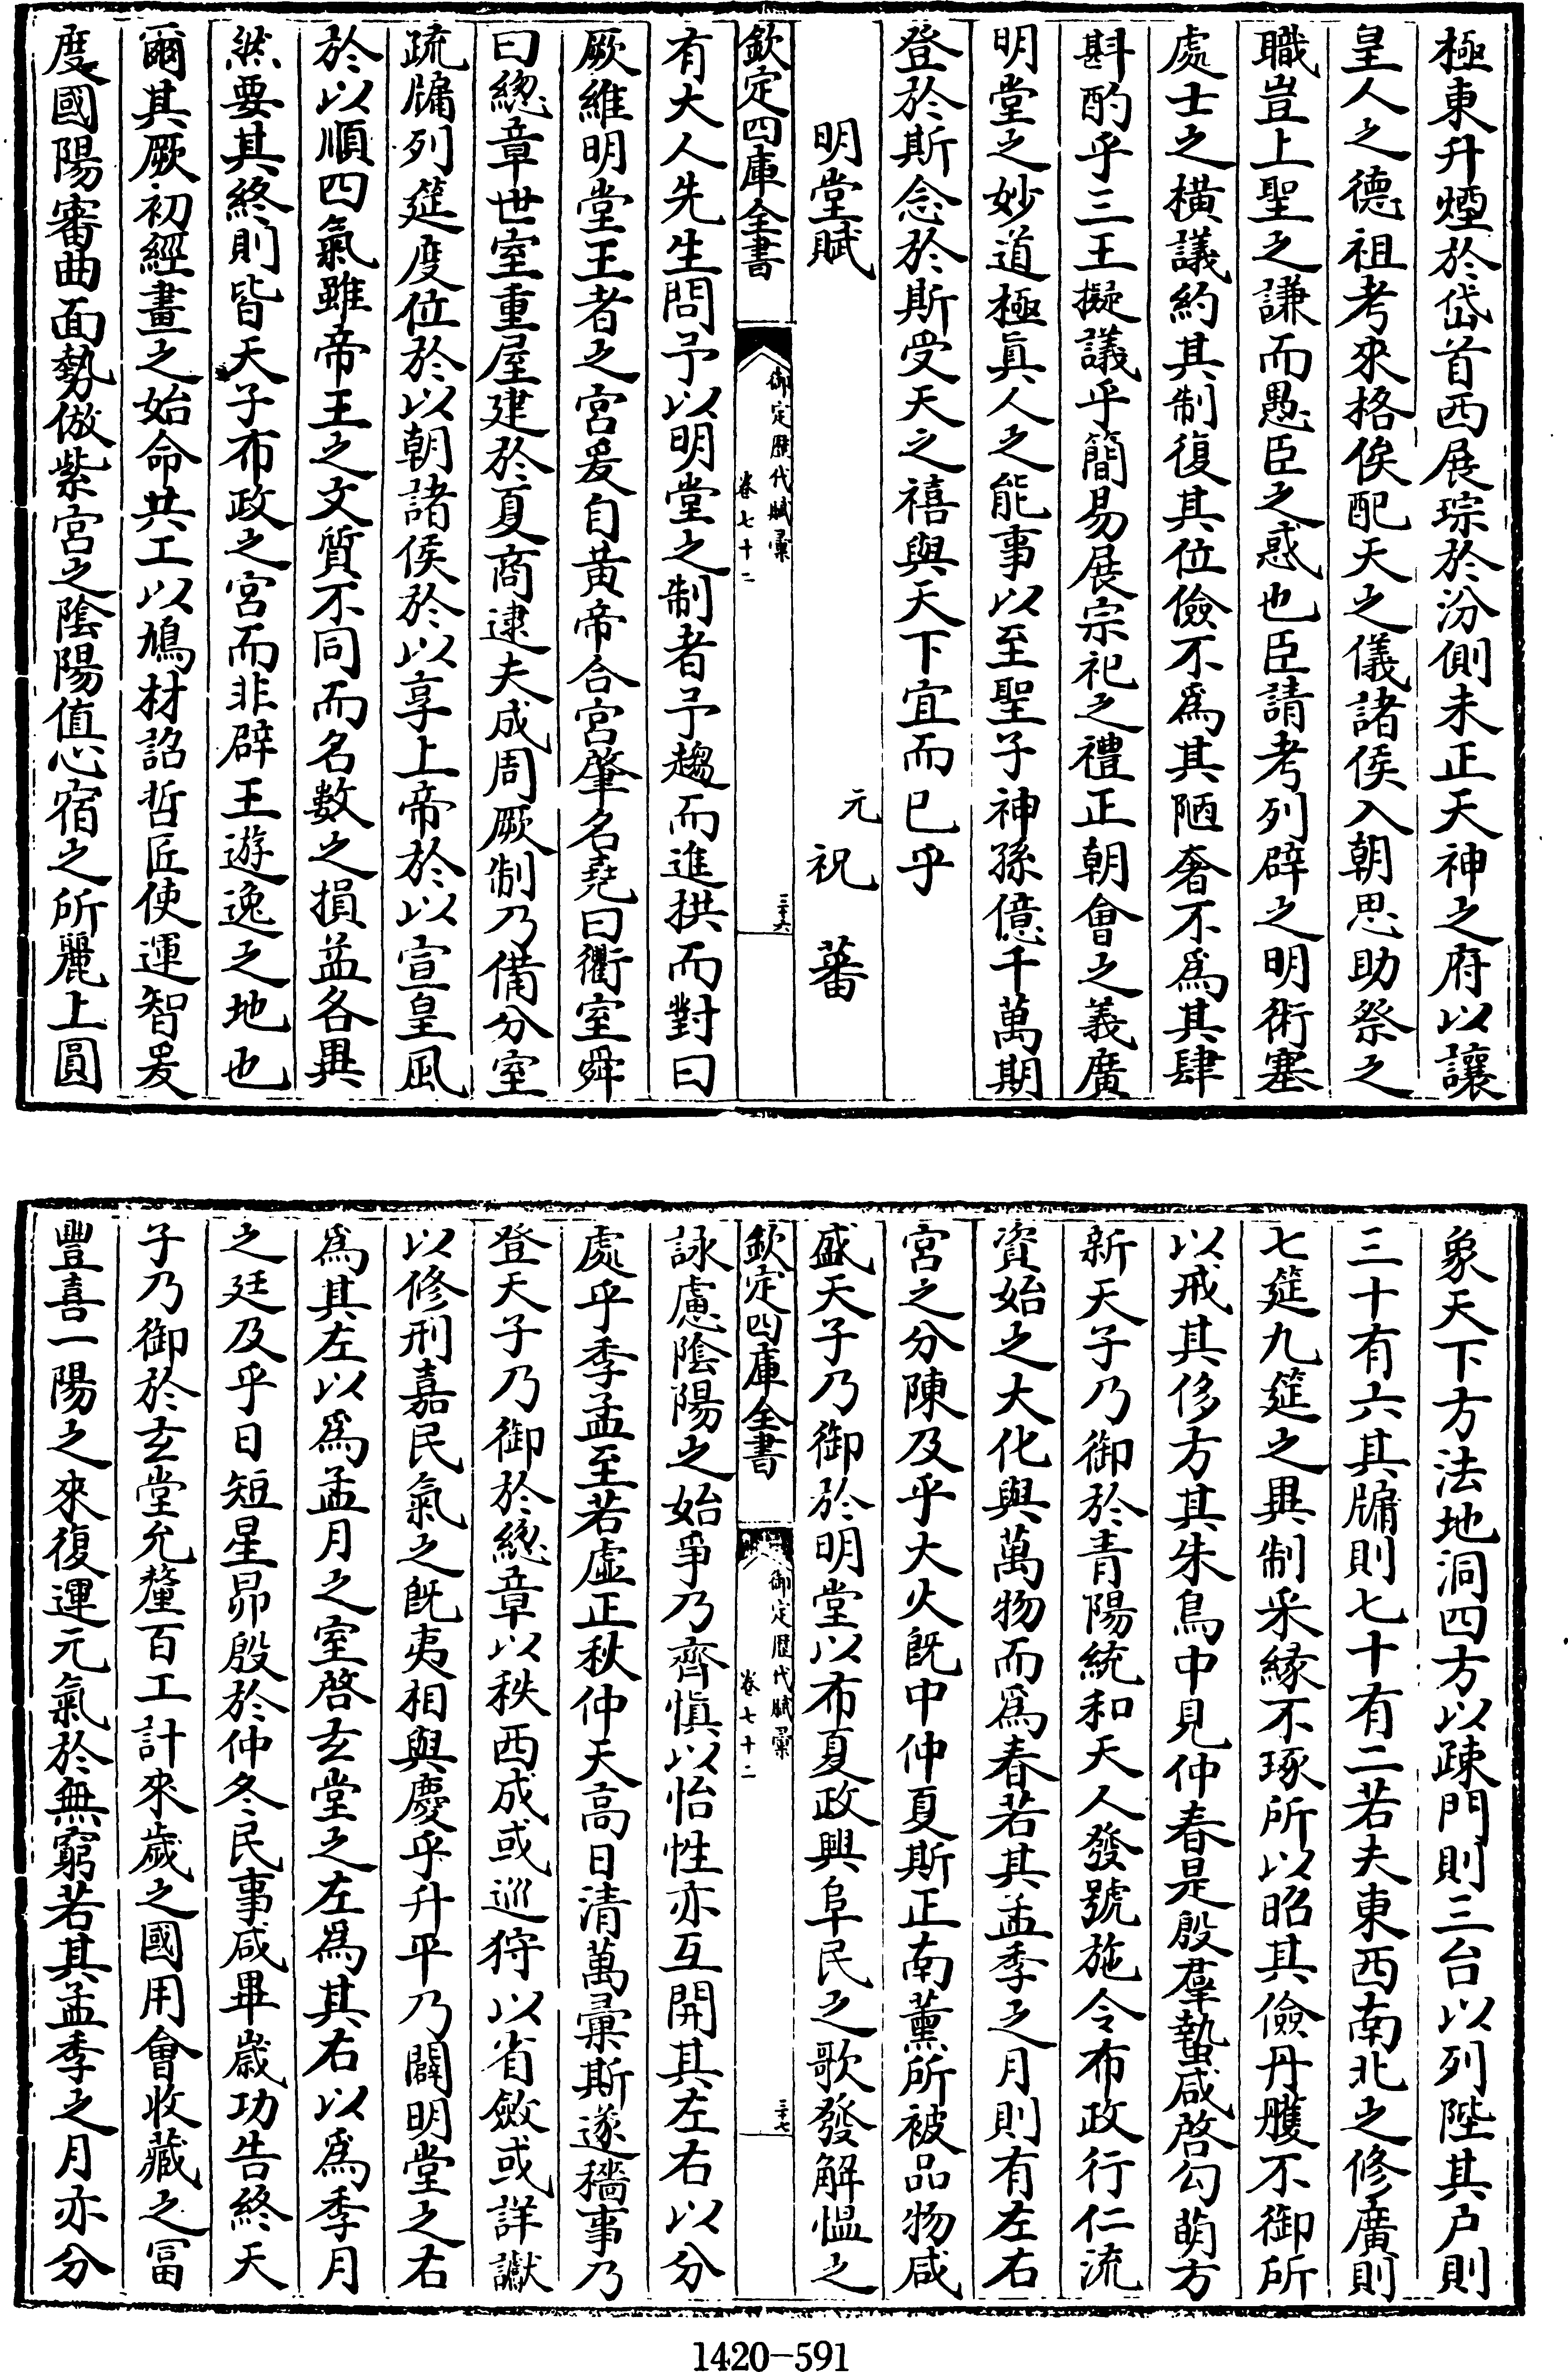 極東升煙於岱首西展琮於汾側未正天神之府以讓
皇人之德祖考來格俟配天之儀諸侯入朝思助祭之
職豈上聖之謙而愚臣之惑也臣請考列辟之明術塞
處士之橫議約其制復其位儉不爲其陋奢不爲其肆
斟酌乎三王擬議乎簡易展宗祀之禮正朝會之義廣
明堂之妙道極眞人之能事以至聖子神孫億千萬期
登於斯念於斯受天之禧與天下宜而已乎
明堂賦 元祝蕃
欽定四庫全書 御定歷代賦彙 卷七十二 三十六
有大人先生問予以明堂之制者予趨而進拱而對曰
厥維明堂王者之宮爰自黃帝合宮肇名堯曰衢室舜
曰總章世室重屋建於夏商逮夫成周厥制乃備分室
疏牖列筵度位於以朝諸侯於以享上帝於以宣皇風
於以順四氣雖帝王之文質不同而名數之損益各異
然要其終則皆天子布政之宮而非辟王遊逸之地也
爾其厥初經畫之始命共工以鳩材詔哲匠使運智爰
度國陽審曲面勢倣紫宮之陰陽值心宿之所麗上圓
象天下方法地洞四方以疎門則三台以列陛其户則
三十有六其牖則七十有二若夫東西南北之修廣則
七筵九筵之異制采緣不琢所以昭其儉丹雘不御所
以戒其侈方其朱鳥中見仲春是殷羣蟄咸啓勾萌方
新天子乃御於青陽統和天人發號施令布政行仁流
資始之大化與萬物而爲春若其孟季之月則有左右
宮之分陳及乎大火既中仲夏斯正南薰所被品物咸
盛天子乃御於明堂以布夏政興阜民之歌發解慍之
欽定四庫全書 御定歷代賦彙 卷七十二 三十七
詠慮陰陽之始爭乃齊慎以怡性亦互開其左右以分
處乎季孟至若虛正秋仲天高日清萬彙斯遂穡事乃
登天子乃御於總章以秩西成或巡狩以省斂或詳讞
以修刑嘉民氣之既夷相與慶乎升平乃闢明堂之右
爲其左以爲孟月之室啓玄堂之左爲其右以爲季月
之廷及乎日短星昴殷於仲冬民事咸畢歲功告終天
子乃御於玄堂允釐百工計來歲之國用會收藏之冨
豐喜一陽之來復運元氣於無窮若其孟季之月亦分
1420-591